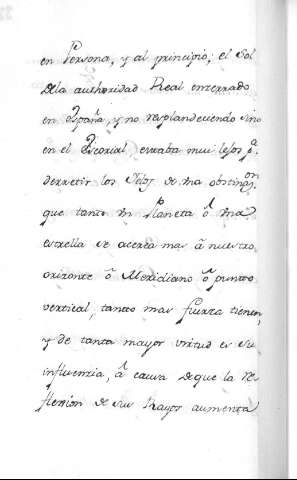 en Persona, y al principio, el Sol
de la authoridad Real enterrado
en España, y no resplandeciendo sino
en el Escorial, estaba mui lejos pª.
derretir los Yelos de una obstinaⁿ.
que tanto un Planeta ô una
estrella se acerca mas â nuestro
orizonte ô Meridiano ô punto
vertical, tanto mas fuerza tienen,
y de tanta mayor virtud es su
influenzia, â causa de que la re-
flexion de sus Rayos aumenta